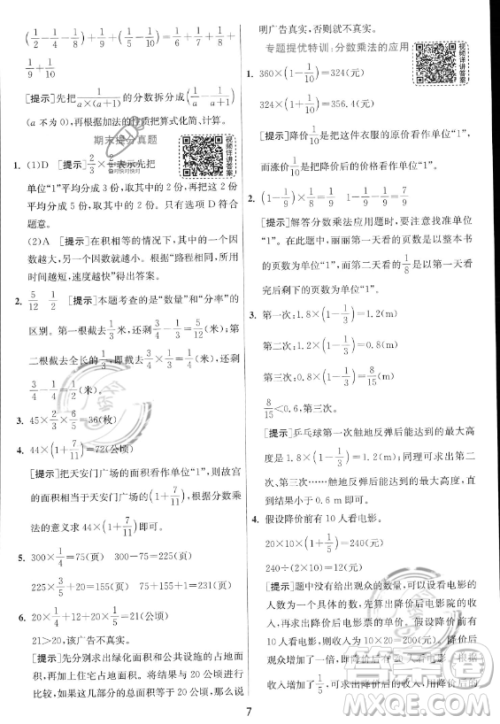 (1/2-1/4)+(1/4-1/8)+(1/8-1/9)+(1/9-1/10)+
1/9+1/10
[提示]先把 a/(a×(a+1)) 的分数拆分成(1/a-1/(a+1))
(a 不为 0),再根据加法的性质把算式化简、计算。
期末提分真题
视频评讲答案
1. (1)D [提示] 表示先把
单位“1”平均分成 3 份,取其中的 2 份,再把这 2 份看作
单位“1”平均分成 5 份,取其中的 3 份。只有选项 D 符合
题意。
(2)A [提示]在积相等的情况下,其中一个因
数越大,另一个因数就越小。根据“路程相同,所
用时间越短,速度越快”得出答案。
2. 5/12 1/2 [提示]本题考查的是“数量”和“分率”的
区别。第一根截去1/3米,还剩3/4-1/3=5/12(米)。第
二根截去全长的1/3,即截去3/4×1/3=1/4(米),还剩
3/4-1/4=1/2(米)。
3. 45×2/3×6/5=36(枚)
4. 44×(1+7/11)=72(公顷)
[提示]把天安门广场的面积看作单位“1”,则故宫
的面积相当于天安门广场的(1+7/11),根据分数乘
法的意义求 44×(1+7/11)即可。
5. 300×1/4=75(页) 300-75=225(页)
225×3/5+20=155(页) 75+155+1=231(页)
6. 20×1/4+12+20×1/5=21(公顷)
21>20,该广告不真实。
[提示]先分别求出绿化面积和公共设施的占地面
积,再将结果与住宅占地面积相加,求出实际的占地
面积,如果这几部分的总面积不等于 20 公顷,那么说
明广告不真实。
专题提优特训:分数乘法的应用
视频评讲答案
1. 360×(1-1/10)=324(元)
324×(1+1/10)=356.4(元)
[提示]降价1/10是把这件衣服的原价看作单位“1”,
而涨价1/10是把降价后的价格看作单位“1”。
2. (1-1/9)×1/9=8/81
[提示]解答分数乘法应用题时,要找准单位
“1”,在本题中,丽丽第一天看的页数是把全书
的页数看作单位“1”,而第二天看的页数是把第一天看
完后剩下的页数看作单位“1”。
3. 第一次:1.8×(1-1/3)=1.2(m)
第二次:1.2×(1-1/3)=0.8(m)
第三次:0.8×(1-1/3)=8/15(m)
8/15<0.6,不合格。
[提示]乒乓球第一次触地后反弹的高度为
1.8×(1-1/3)=1.2(m),同理可求出第二
次、第三次……触地反弹后的高度,直
到结果小于 0.6 m 即可。
4. 假设降价前有 10 人看电影。
20×10×(1+1/5)=240(元)
240÷(2×10)=12(元)
[提示]题中没有给出观众的数量,可以设看电影的
人数为一个具体数。先算出降价前电影院
的收入,再求出降价后电影院的收入,最后用降价
后的收入除以降价后的观众人数,就可求出现在
7